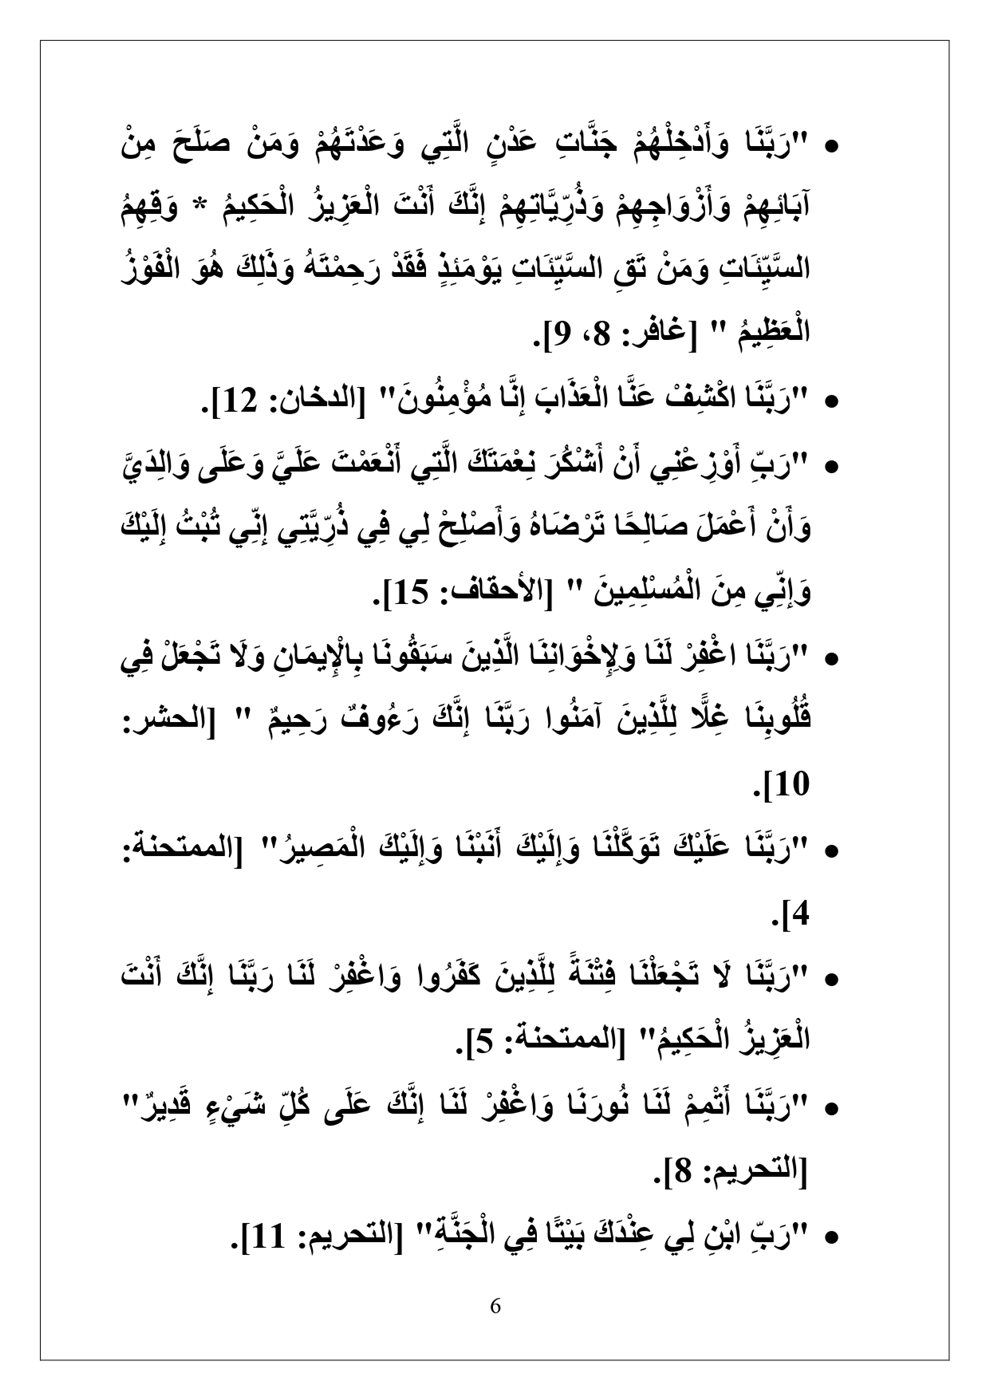 • "رَبَّنَا وَأَدْخِلْهُمْ جَنَّاتِ عَدْنٍ الَّتِي وَعَدْتَهُمْ وَمَنْ صَلَحَ مِنْ
آبَائِهِمْ وَأَزْوَاجِهِمْ وَذُرِّيَّاتِهِمْ إِنَّكَ أَنْتَ الْعَزِيزُ الْحَكِيمُ * وَقِهِمُ
السَّيِّئَاتِ وَمَنْ تَقِ السَّيِّئَاتِ يَوْمَئِذٍ فَقَدْ رَحِمْتَهُ وَذَلِكَ هُوَ الْفَوْزُ
الْعَظِيمُ " [غافر: 8، 9].
• "رَبَّنَا اكْشِفْ عَنَّا الْعَذَابَ إِنَّا مُؤْمِنُونَ" [الدخان: 12].
• "رَبِّ أَوْزِعْنِي أَنْ أَشْكُرَ نِعْمَتَكَ الَّتِي أَنْعَمْتَ عَلَيَّ وَعَلَى وَالِدَيَّ
وَأَنْ أَعْمَلَ صَالِحًا تَرْضَاهُ وَأَصْلِحْ لِي فِي ذُرِّيَّتِي إِنِّي تُبْتُ إِلَيْكَ
وَإِنِّي مِنَ الْمُسْلِمِينَ " [الأحقاف: 15].
• "رَبَّنَا اغْفِرْ لَنَا وَلِإِخْوَانِنَا الَّذِينَ سَبَقُونَا بِالْإِيمَانِ وَلَا تَجْعَلْ فِي
قُلُوبِنَا غِلًّا لِلَّذِينَ آمَنُوا رَبَّنَا إِنَّكَ رَءُوفٌ رَحِيمٌ " [الحشر:
10].
• "رَبَّنَا عَلَيْكَ تَوَكَّلْنَا وَإِلَيْكَ أَنَبْنَا وَإِلَيْكَ الْمَصِيرُ" [الممتحنة:
4].
• "رَبَّنَا لَا تَجْعَلْنَا فِتْنَةً لِلَّذِينَ كَفَرُوا وَاغْفِرْ لَنَا رَبَّنَا إِنَّكَ أَنْتَ
الْعَزِيزُ الْحَكِيمُ" [الممتحنة: 5].
• "رَبَّنَا أَتْمِمْ لَنَا نُورَنَا وَاغْفِرْ لَنَا إِنَّكَ عَلَى كُلِّ شَيْءٍ قَدِيرٌ"
[التحريم: 8].
• "رَبِّ ابْنِ لِي عِنْدَكَ بَيْتًا فِي الْجَنَّةِ" [التحريم: 11].
6